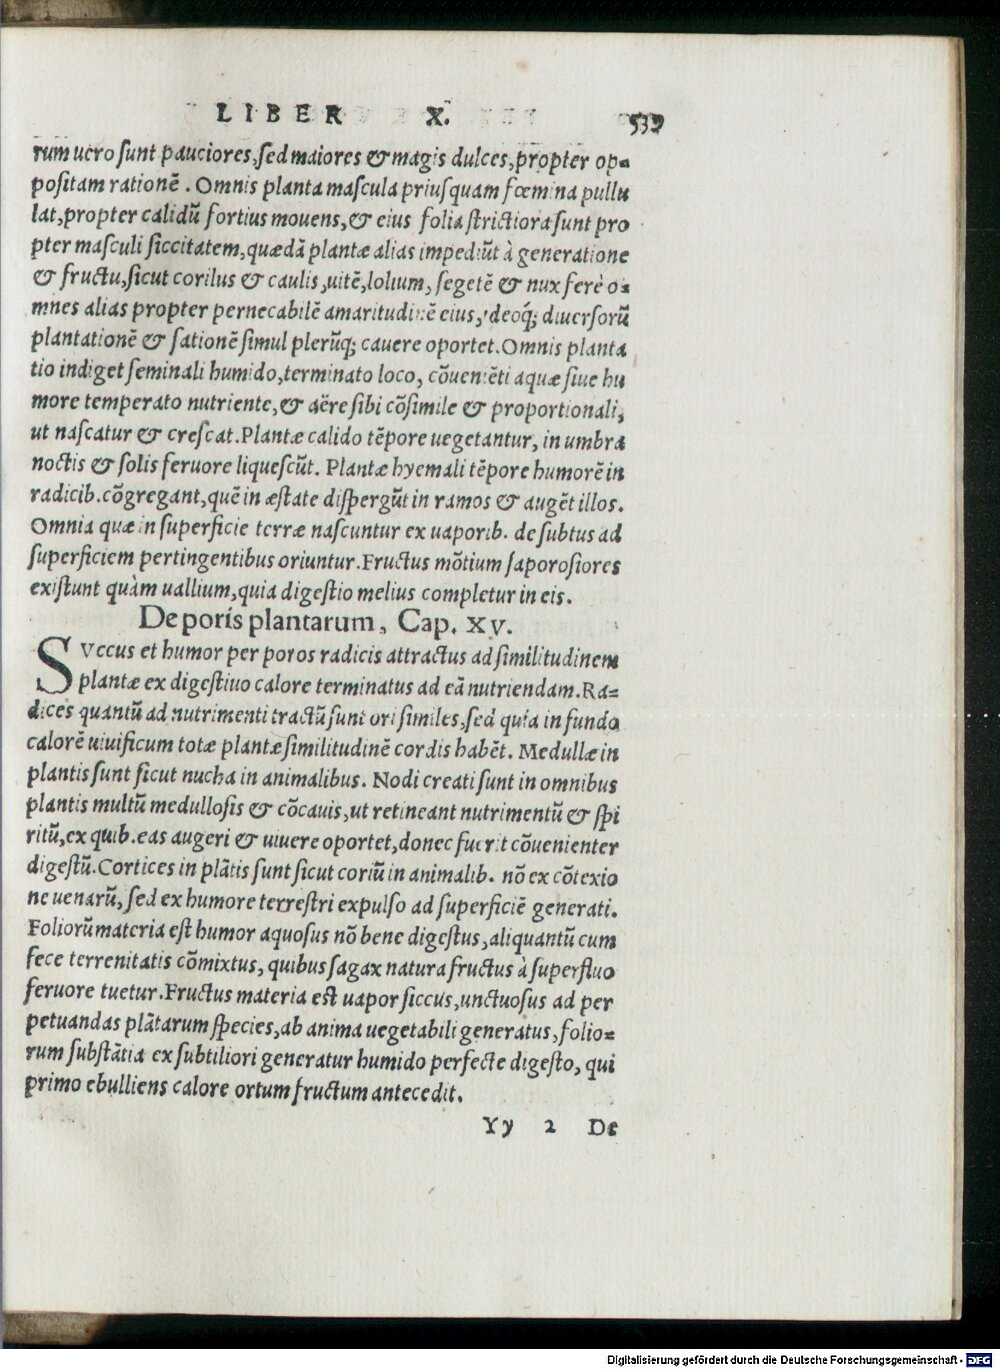 LIBER X. 539
rum uero sunt pauciores, sed maiores & magis dulces, propter op-
positam rationē. Omnis planta mascula priusquam fœmina pullu
lat, propter calidū fortius mouens, & eius folia strictiora sunt pro
pter masculi siccitatem, quædā plantæ alias impediūt à generatione
& fructu, sicut corilus & caulis, uitē, lolium, segetē & nux ferè o-
mnes alias propter pernecabilē amaritudinē eius, ideoq́; diuersorū
plantationē & sationē simul plerūq; cauere oportet. Omnis planta
tio indiget seminali humido, terminato loco, cōueniēti aquæ siue hu
more temperato nutriente, & aëre sibi cōsimile & proportionali,
ut nascatur & crescat. Plantæ calido tēpore uegetantur, in umbra
noctis & solis feruore liquescūt. Plantæ hyemali tēpore humorē in
radicib. cōgregant, quē in æstate dispergūt in ramos & augēt illos.
Omnia quæ in superficie terræ nascuntur ex uaporib. de subtus ad
superficiem pertingentibus oriuntur. Fructus mōtium saporosiores
existunt quàm uallium, quia digestio melius completur in eis.
De poris plantarum, Cap. XV.
SVccus et humor per poros radicis attractus ad similitudinem
plantæ ex digestiuo calore terminatus ad eā nutriendam. Ra-
dices quantū ad nutrimenti tractū sunt ori similes, sed quia in fundo
calorē uiuificum totæ plantæ similitudinē cordis habēt. Medullæ in
plantis sunt sicut nucha in animalibus. Nodi creati sunt in omnibus
plantis multū medullosis & cōcauis, ut retineant nutrimentū & spi
ritū, ex quib. eas augeri & uiuere oportet, donec fuerit cōuenienter
digestū. Cortices in plātis sunt sicut coriū in animalib. nō ex cōtexio
ne uenarū, sed ex humore terrestri expulso ad superficiē generati.
Foliorū materia est humor aquosus nō bene digestus, aliquantū cum
fece terrenitatis cōmixtus, quibus sagax natura fructus à superfluo
feruore tuetur. Fructus materia est uapor siccus, unctuosus ad per
petuandas plātarum species, ab anima uegetabili generatus, folio-
rum substātia ex subtiliori generatur humido perfecte digesto, qui
primo ebulliens calore ortum fructum antecedit.
Yy 2 De
Digitalisierung gefördert durch die Deutsche Forschungsgemeinschaft - DFG